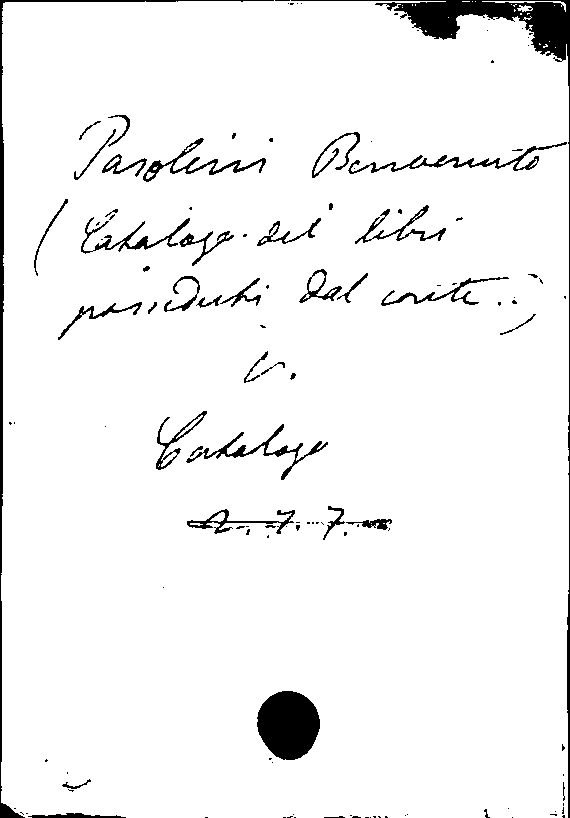 Pasolini Benvenuto
(Catalogo dei libri
posseduti dal conte..)
v.
Catalogo
2.7.7.